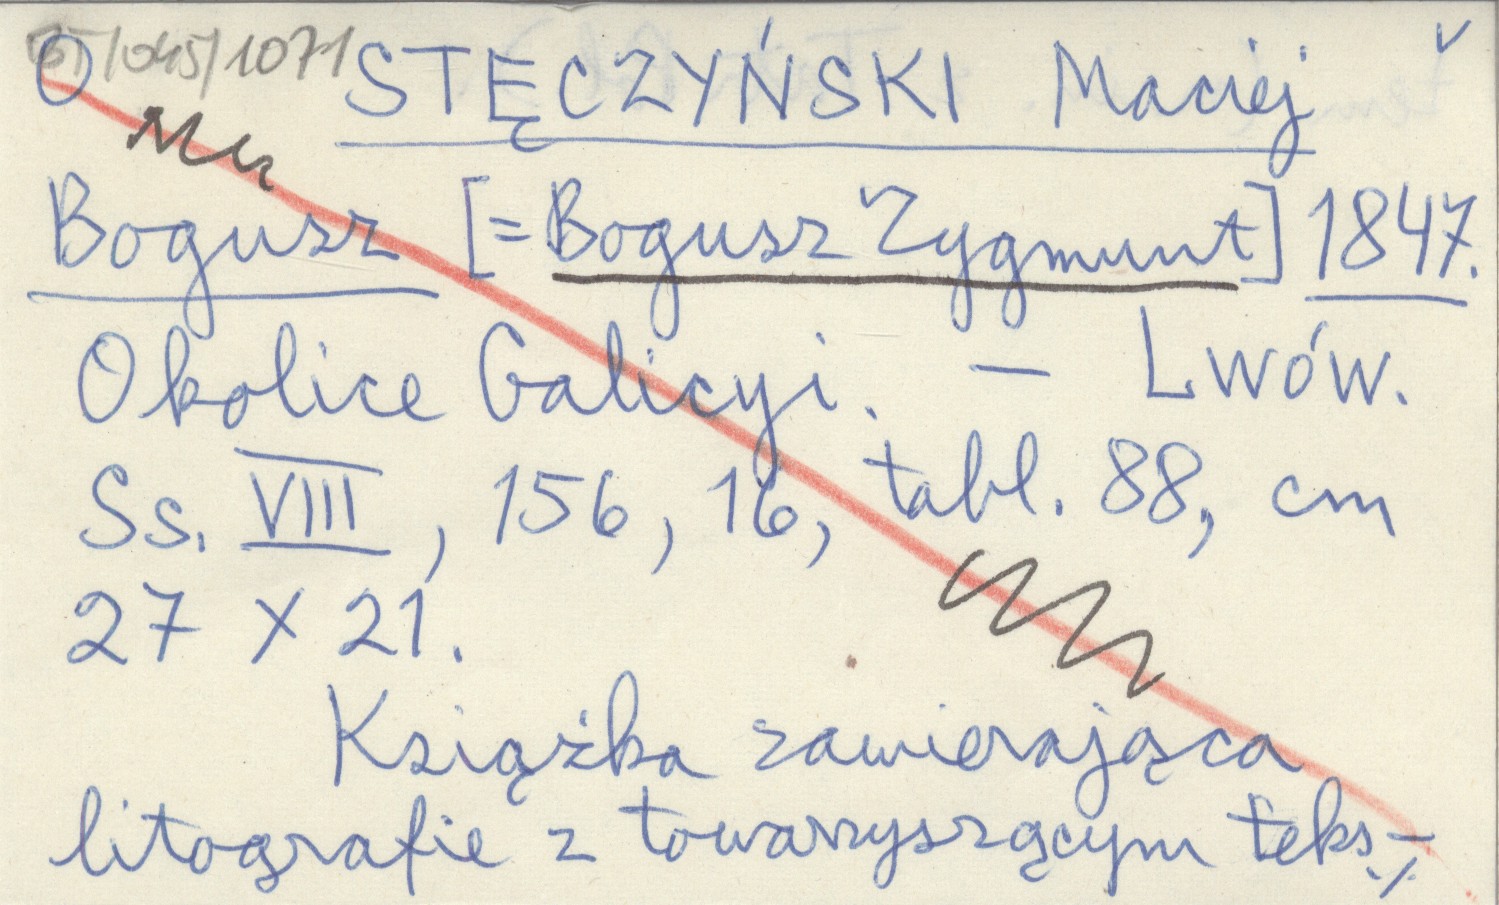 O STĘCZYŃSKI Maciej
Bogusz [= Bogusz Zygmunt] 1847.
Okolice Galicyi. — Lwów.
Ss. VIII, 156, 16, tabl. 88, cm
27 x 21.
Książka zawierająca
litografie z towarzyszącym teks-